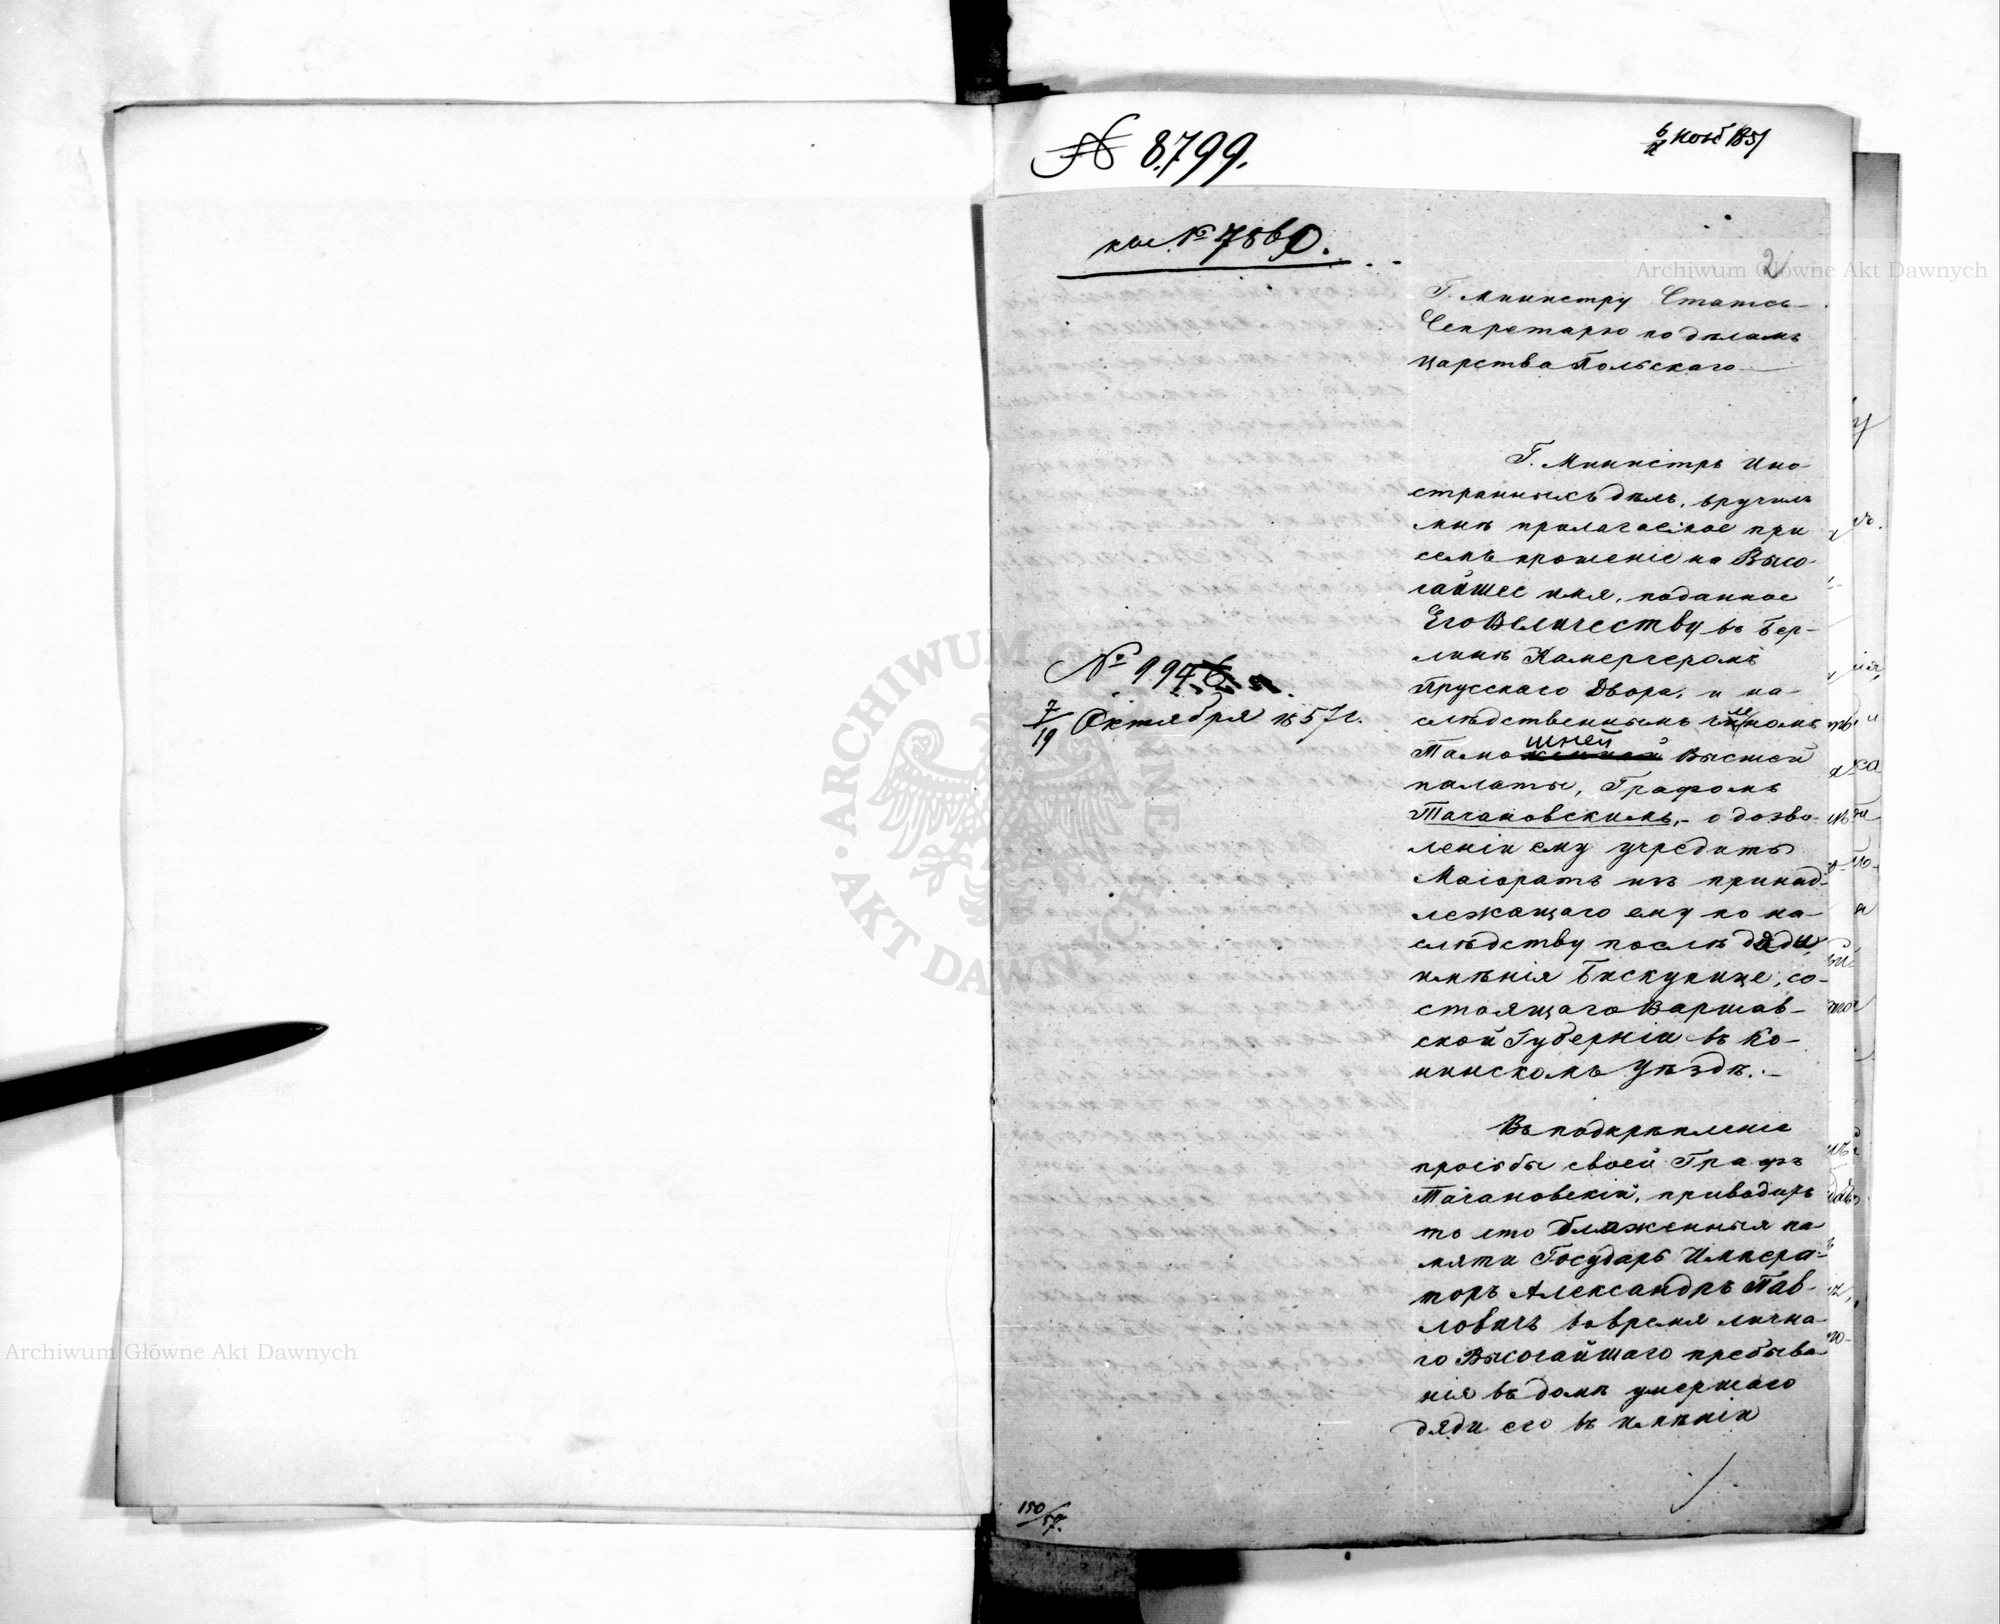 № 8799.
6/18 Нояб 1857
къ № 7860.
2
Archiwum Główne Akt Dawnych
Г. Министру Статсъ-
Секретарю по дѣламъ
Царства Польскаго
Г. Министръ Ино-
странныхъ дѣлъ, вручилъ
мнѣ прилагаемое при
семъ прошеніе на Высо-
чайшее имя, поданное
Его Величеству въ Бер-
линѣ Камергеромъ
Прусскаго Двора, и на-
слѣдственнымъ членомъ
Тамошней Высшей
палаты, Графомъ
Тачановскимъ,- о дозво-
леніи ему учредить
Маіоратъ изъ принад-
лежащаго ему по на-
слѣдству послѣ дяди,
имѣнія Бискупице, со-
стоящаго Варшав-
ской Губерніи въ Ко-
нинскомъ Уѣздѣ.-
№ 994
7/19 Октября 1857 г.
ARCHIWUM GŁÓWNE AKT DAWNYCH
Въ подкрѣпленіе
просьбы своей Графъ
Тачановскій, приводитъ
то что блаженныя па-
мяти Государь Импера-
торъ Александръ Пав-
ловичъ во время лична-
го Высочайшаго пребыва-
нія въ домѣ умершаго
дяди его въ имѣніи
Archiwum Główne Akt Dawnych
150/57.